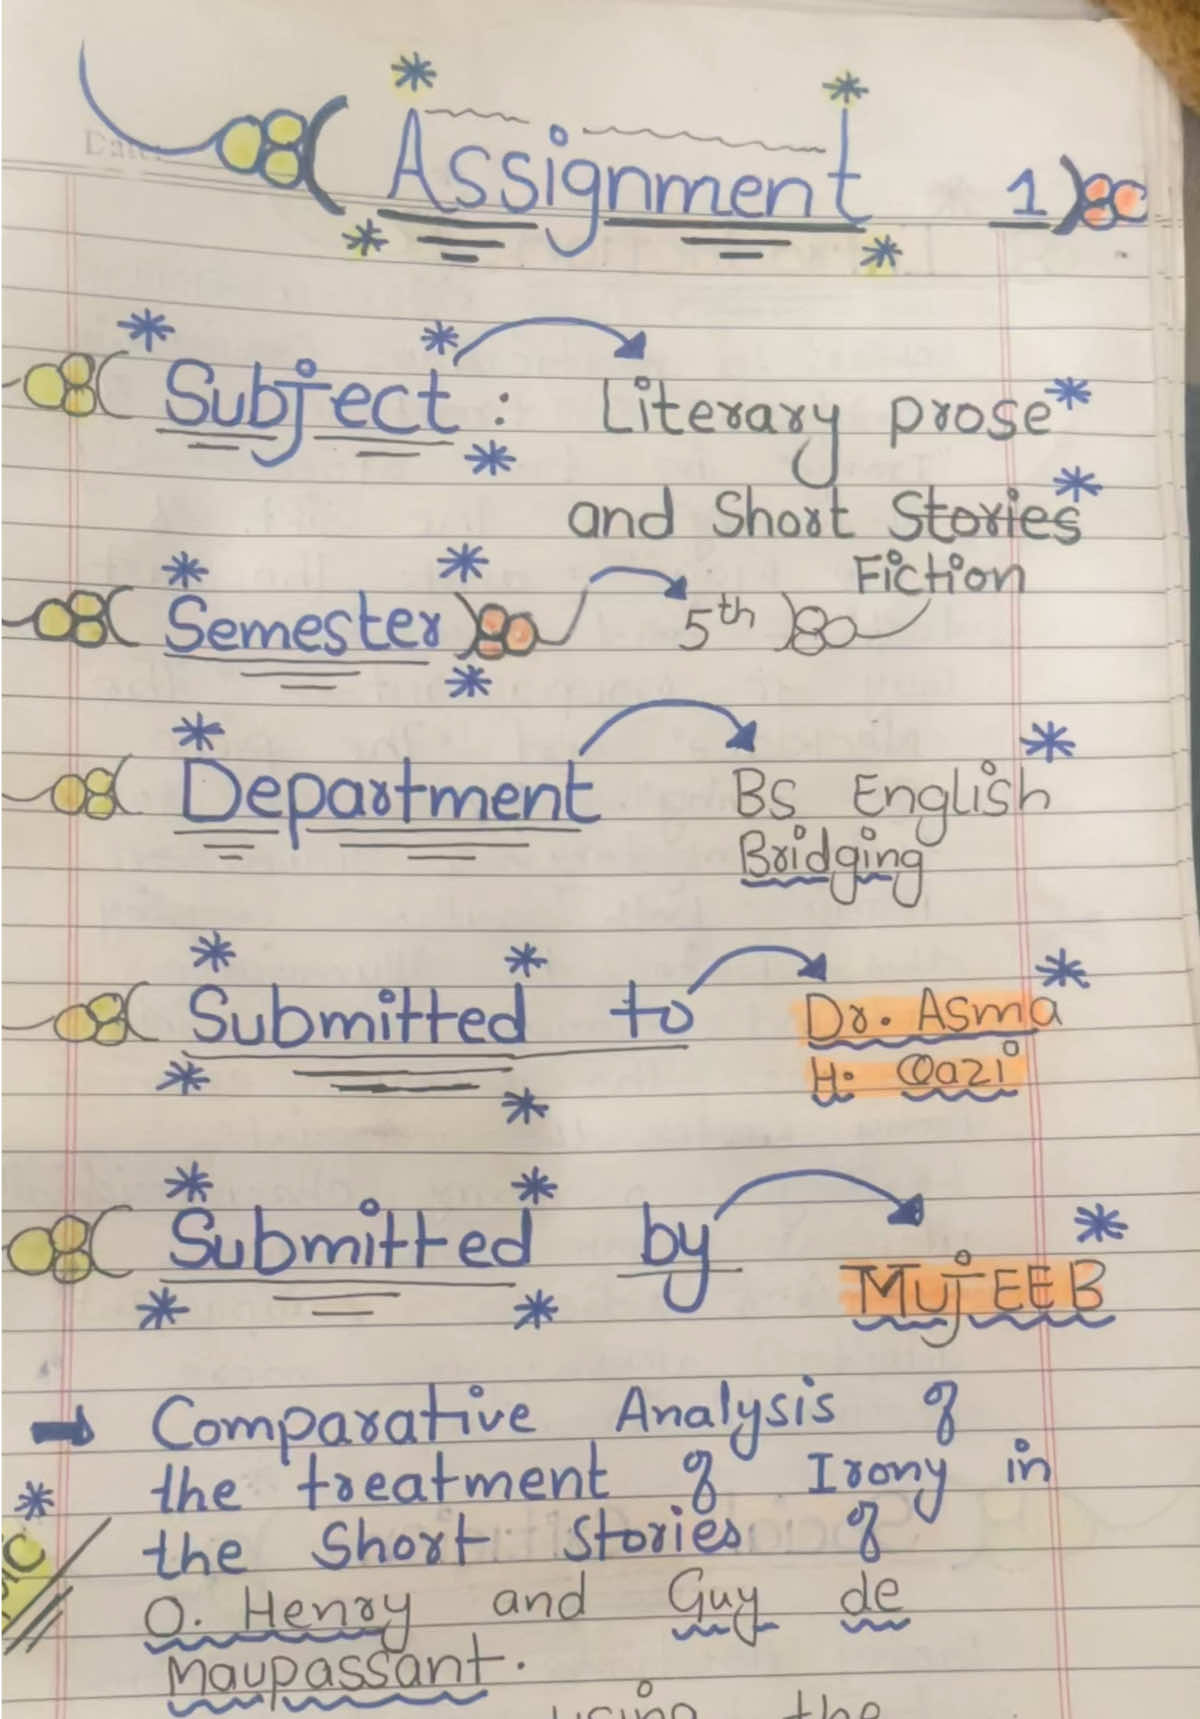 Date:
Assignment 1
Subject : Literary prose
and Short Stories
Fiction
Semester 5th
Department BS English
Bridging
Submitted to Dr. Asma
H. Qazi
Submitted by MujEEB
Comparative Analysis of
the treatment of Irony in
the Short Stories of
O. Henry and Guy de
Maupassant.
using the